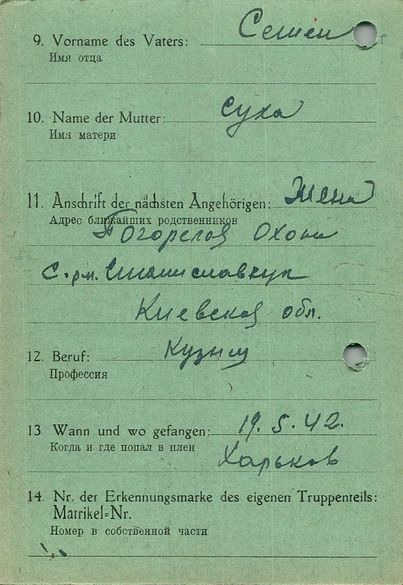 9. Vorname des Vaters: Семен
Имя отца
10. Name der Mutter: Суха
Имя матери
11. Anschrift der nächsten Angehörigen: Жена
Адрес ближайших родственников
Погорелов
Киевская обл.
12. Beruf: Кузнец
Профессия
13 Wann und wo gefangen: 19.5.42.
Когда и где попал в плен
Харьков
14. Nr. der Erkennungsmarke des eigenen Truppenteils:
Matrikel-Nr.
Номер в собственной части